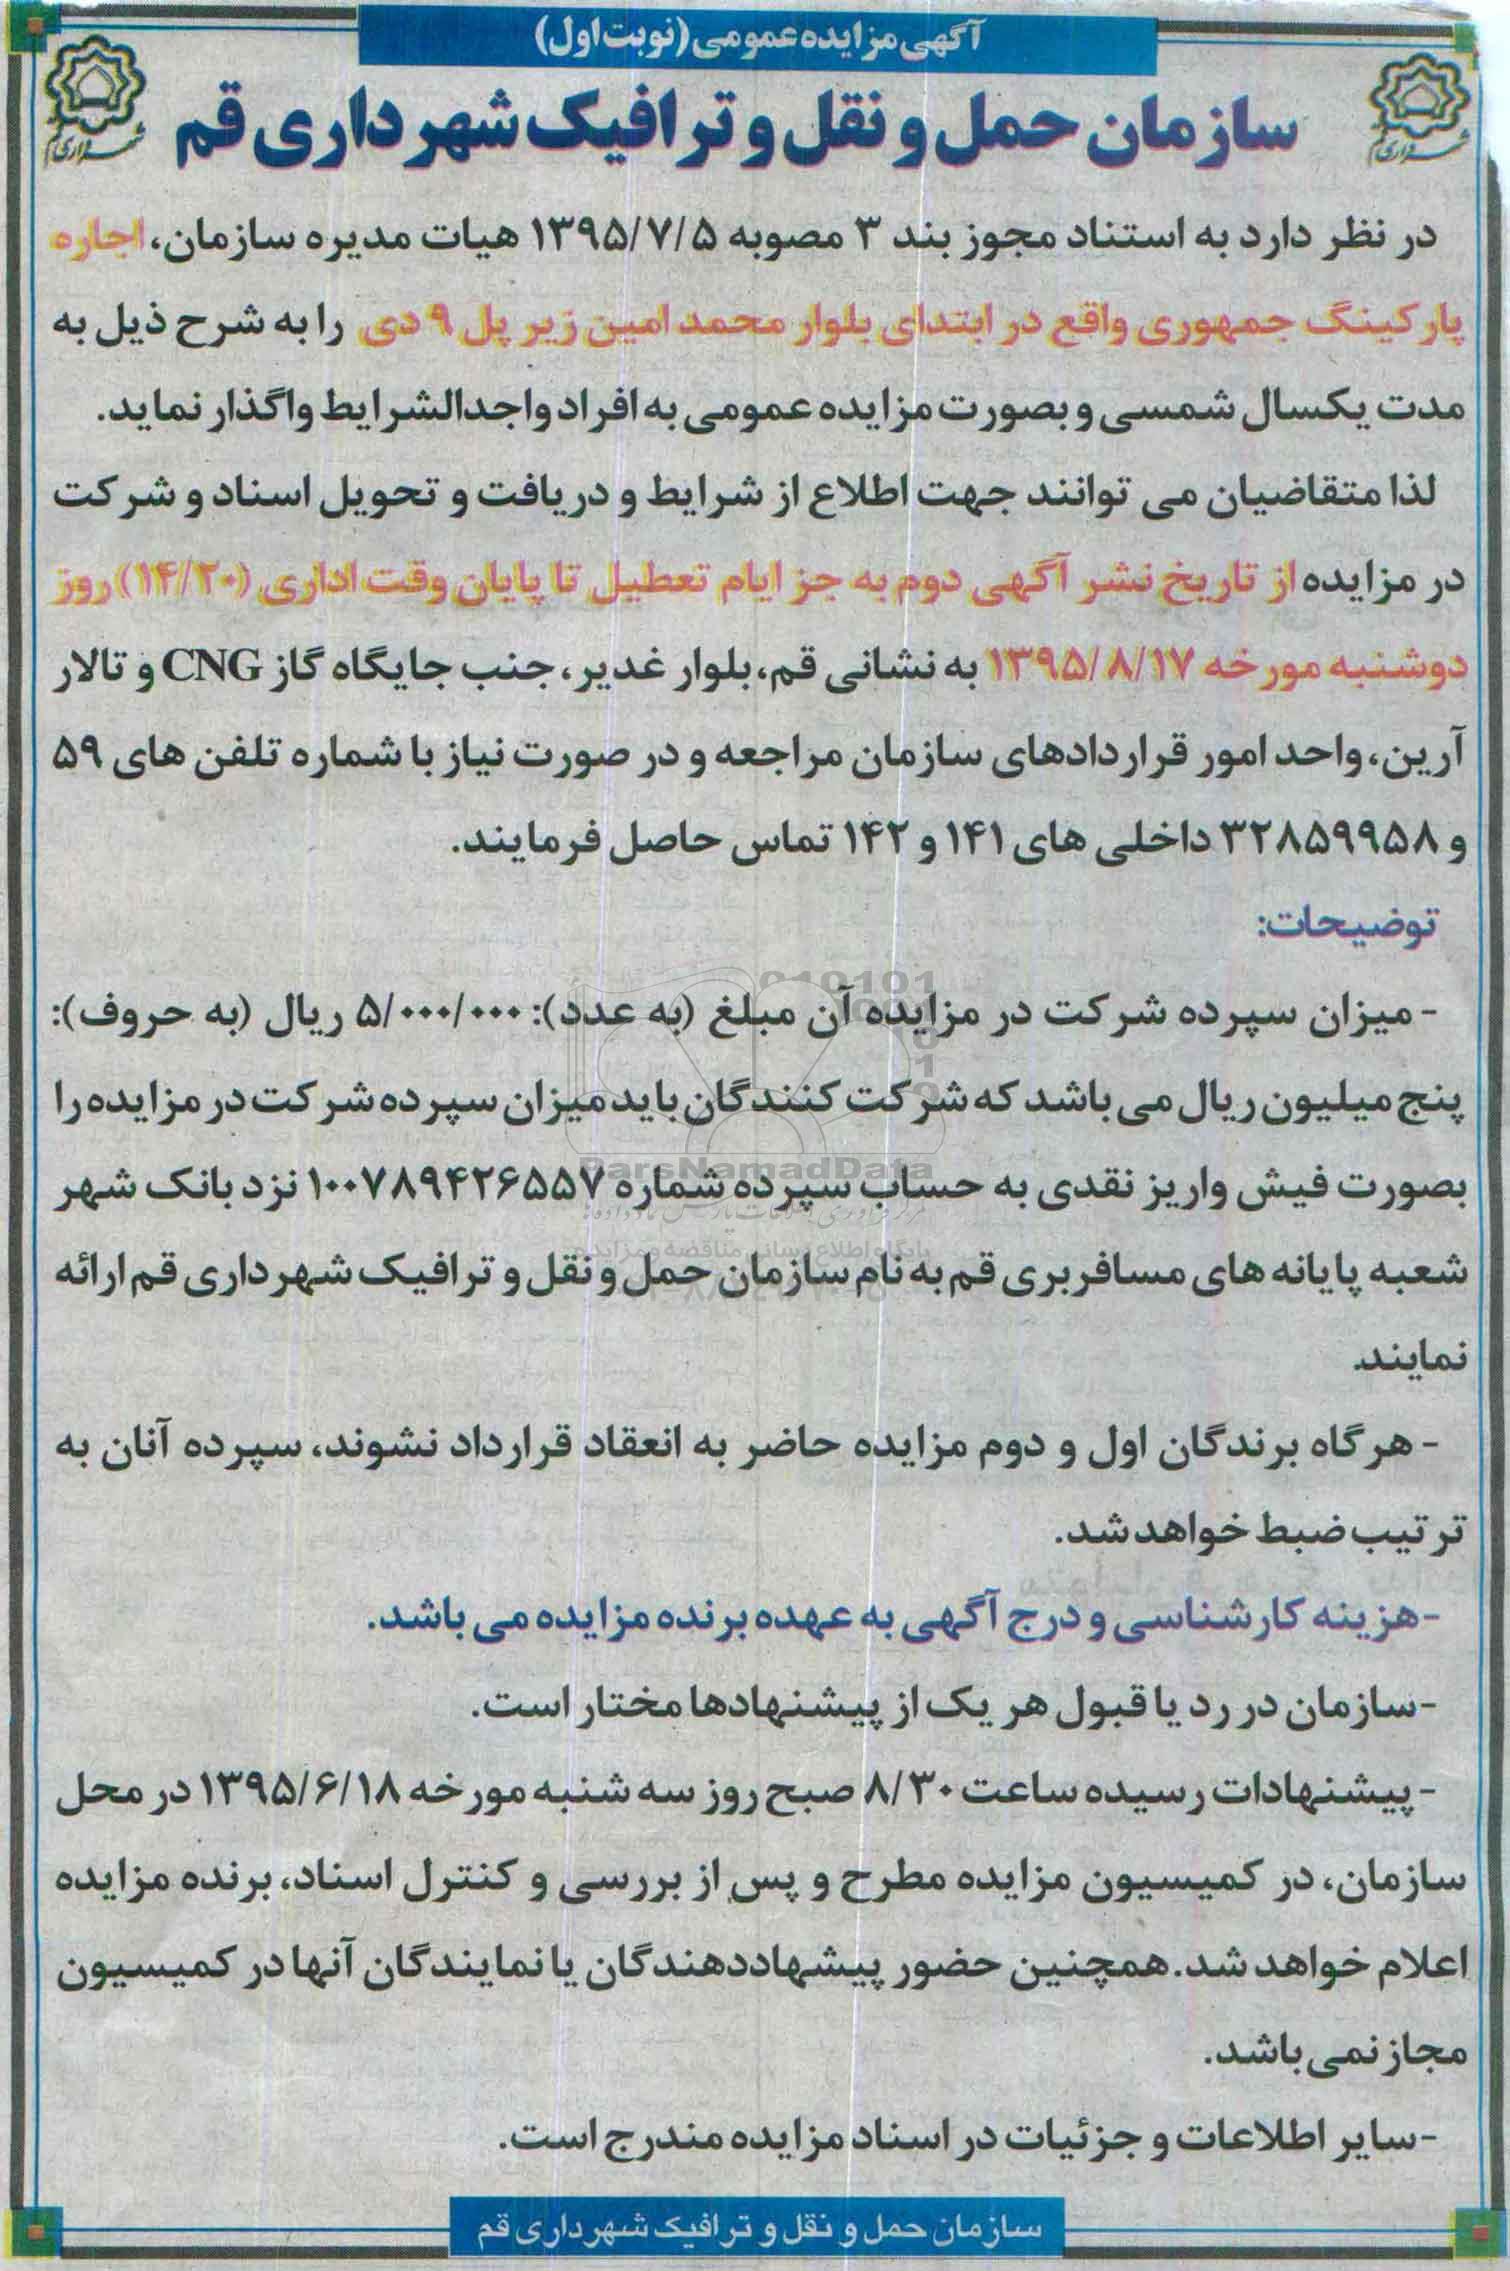 آگهی مزایده عمومی (نوبت اول)
سازمان حمل و نقل و ترافیک شهرداری قم
در نظر دارد به استناد مجوز بند ۳ مصوبه ۱۳۹۵/۷/۵ هیات مدیره سازمان، اجاره
پارکینگ جمهوری واقع در ابتدای بلوار محمد امین زیر پل ۹ دی را به شرح ذیل به
مدت یکسال شمسی و بصورت مزایده عمومی به افراد واجدالشرایط واگذار نماید.
لذا متقاضیان می توانند جهت اطلاع از شرایط و دریافت و تحویل اسناد و شرکت
در مزایده از تاریخ نشر آگهی دوم به جز ایام تعطیل تا پایان وقت اداری (۱۴/۲۰) روز
دوشنبه مورخه ۱۳۹۵/۸/۱۷ به نشانی قم، بلوار غدیر، جنب جایگاه گاز CNG و تالار
آرین، واحد امور قراردادهای سازمان مراجعه و در صورت نیاز با شماره تلفن های ۵۹
و ۳۲۸۵۹۹۵۸ داخلی های ۱۴۱ و ۱۴۲ تماس حاصل فرمایند.
توضیحات:
- میزان سپرده شرکت در مزایده آن مبلغ (به عدد): ۵/۰۰۰/۰۰۰ ریال (به حروف):
پنج میلیون ریال می باشد که شرکت کنندگان باید میزان سپرده شرکت در مزایده را
بصورت فیش واریز نقدی به حساب سپرده شماره ۱۰۰۷۸۹۴۲۶۵۵۷ نزد بانک شهر
شعبه پایانه های مسافربری قم به نام سازمان حمل و نقل و ترافیک شهرداری قم ارائه
نمایند.
- هرگاه برندگان اول و دوم مزایده حاضر به انعقاد قرارداد نشوند، سپرده آنان به
ترتیب ضبط خواهد شد.
-هزینه کارشناسی و درج آگهی به عهده برنده مزایده می باشد.
-سازمان در رد یا قبول هر یک از پیشنهادها مختار است.
- پیشنهادات رسیده ساعت ۸/۳۰ صبح روز سه شنبه مورخه ۱۳۹۵/۶/۱۸ در محل
سازمان، در کمیسیون مزایده مطرح و پس از بررسی و کنترل اسناد، برنده مزایده
اعلام خواهد شد. همچنین حضور پیشهاددهندگان یا نمایندگان آنها در کمیسیون
مجاز نمی باشد.
-سایر اطلاعات و جزئیات در اسناد مزایده مندرج است.
سازمان حمل و نقل و ترافیک شهرداری قم
شهرداری قم
شهرداری قم
ParsNamadData
پایگاه اطلاع رسانی مناقصه و مزایده